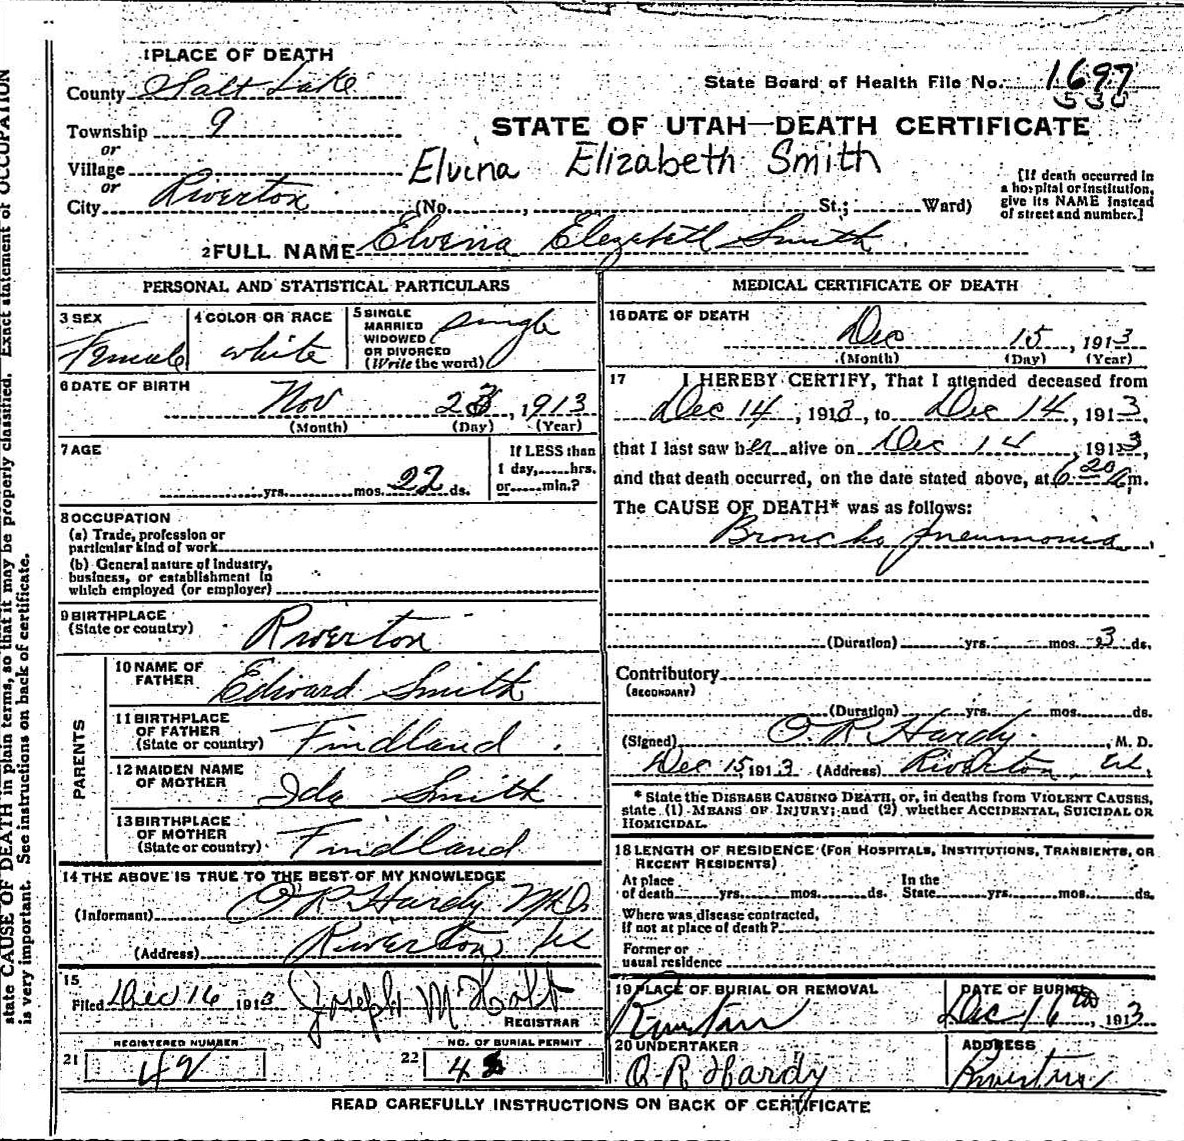 1 PLACE OF DEATH
County Salt Lake
State Board of Health File No. 1697
530
Township 9
or
STATE OF UTAH—DEATH CERTIFICATE
Village
or
Elvina Elizabeth Smith
City Riverton (No. , St.; Ward)
[If death occurred in
a hospital or institution,
give its NAME instead
of street and number.]
2 FULL NAME Elvena Elezebeth Smith
PERSONAL AND STATISTICAL PARTICULARS
3 SEX
Female
4 COLOR OR RACE
white
5 SINGLE
MARRIED
WIDOWED
OR DIVORCED
(Write the word)
single
6 DATE OF BIRTH
Nov 23, 1913
(Month) (Day) (Year)
7 AGE
yrs. mos. 22 ds.
If LESS than
1 day, hrs.
or min.?
8 OCCUPATION
(a) Trade, profession or
particular kind of work
(b) General nature of Industry,
business, or establishment in
which employed (or employer)
9 BIRTHPLACE
(State or country)
Riverton
PARENTS
10 NAME OF
FATHER
Edward Smith
11 BIRTHPLACE
OF FATHER
(State or country)
Findland
12 MAIDEN NAME
OF MOTHER
Ida Smith
13 BIRTHPLACE
OF MOTHER
(State or country)
Findland
14 THE ABOVE IS TRUE TO THE BEST OF MY KNOWLEDGE
(Informant) O R Hardy M.D.
(Address) Riverton
15
Filed Dec 16 1913 Joseph M Holt
REGISTRAR
REGISTERED NUMBER
21 42
NO. OF BURIAL PERMIT
22 42
MEDICAL CERTIFICATE OF DEATH
16 DATE OF DEATH
Dec 15, 1913
(Month) (Day) (Year)
17 I HEREBY CERTIFY, That I attended deceased from
Dec 14, 1913, to Dec 14, 1913,
that I last saw her alive on Dec 14, 1913,
and that death occurred, on the date stated above, at 6 20 A m.
The CAUSE OF DEATH* was as follows:
Broncho pneumonia
(Duration) yrs. mos. 3 ds.
Contributory
(SECONDARY)
(Duration) yrs. mos. ds.
(Signed) O. R. Hardy, M. D.
Dec 15, 1913 (Address) Riverton, Ut.
* State the DISEASE CAUSING DEATH, or, in deaths from VIOLENT CAUSES,
state (1) MEANS OF INJURY; and (2) whether ACCIDENTAL, SUICIDAL OR
HOMICIDAL.
18 LENGTH OF RESIDENCE (FOR HOSPITALS, INSTITUTIONS, TRANSIENTS, OR
RECENT RESIDENTS)
At place
of death yrs. mos. ds.
In the
State yrs. mos. ds.
Where was disease contracted,
if not at place of death?
Former or
usual residence
19 PLACE OF BURIAL OR REMOVAL
Riverton
DATE OF BURIAL
Dec 16th, 1913
20 UNDERTAKER
O R Hardy
ADDRESS
Riverton
READ CAREFULLY INSTRUCTIONS ON BACK OF CERTIFICATE
state CAUSE OF DEATH in plain terms, so that it may be properly classified. Exact statement of OCCUPATION
is very important. See instructions on back of certificate.